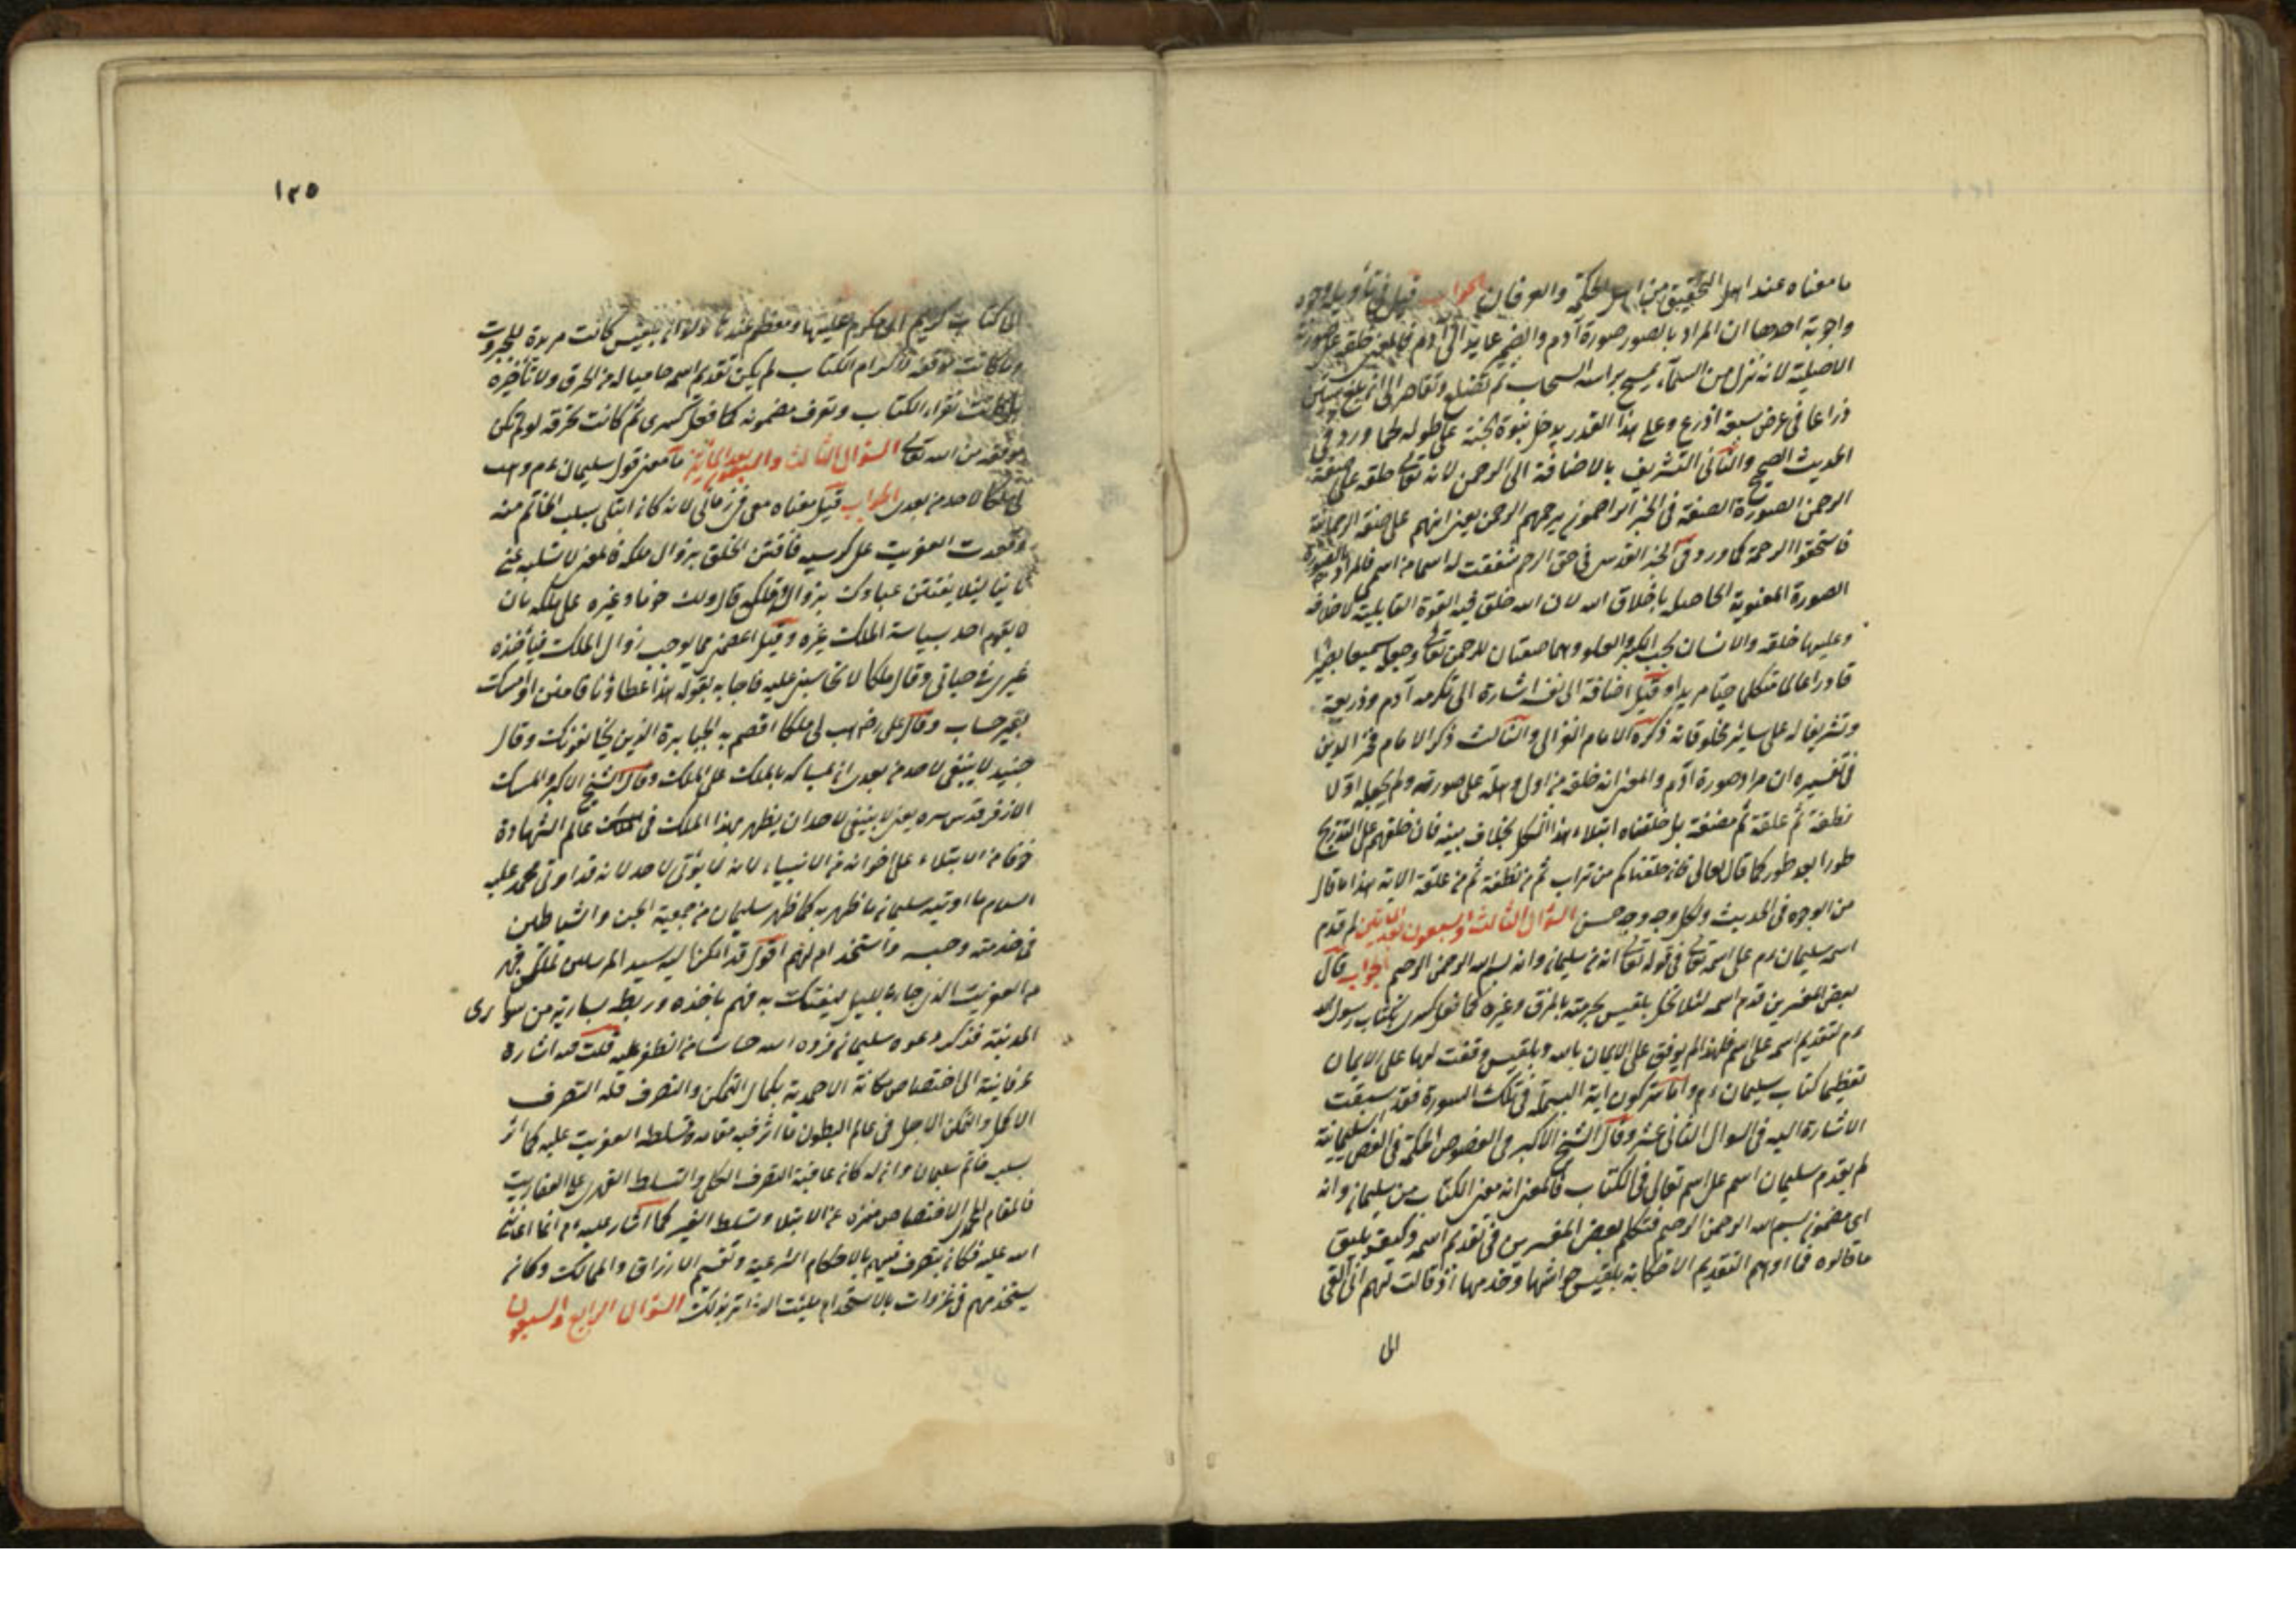 ما معناه عند اهل التحقيق من اهل الحكمة والعرفان الجواب قيل في تأويله وجوه
واجوبة احدها ان المراد بالصور صورة آدم والضمير عايد الى آدم فالمعنى خلقه على صورته
الاصلية لانه نزل من السماء يمسح براسه السحاب ثم وتقاصر الى ان بلغ ستين
ذراعا في عرض سبعة اذرع وعلى هذا القدر يدخل بنوه الجنة على طوله كما ورد في
الحديث الصحيح والثانى التشريف بالاضافة الى الرحمن لانه تعالى خلقه على صفة
الرحمن الصورة الصفة في الخبر الراحمون يرحمهم الرحمن يعنى انهم على صفة الرحمانية
فاستحقوا الرحمة كما ورد في الخبر القدس في حق الرحم شققت له اسما من اسمى فالمراد بالصورة
الصورة المعنوية الحاصلة باخلاق الله لان الله خلق فيه القوة القابلية لاخلاقه
وعليها خلقه والانسان يحب الكبر والعلو وهما صفتان للرحمن تعالى وجعله سميعا بصيرا
قادرا عالما متكلما حيا مريدا وقيل اضافة الى نفسه اشارة الى تكرمه آدم وذريته
وتشريفا له على سائر مخلوقاته ذكره الامام الغزالى والثالث ذكر الامام فخر الدين
في تفسيره ان مراد صورة آدم والمعنى انه خلقه من اول وهلة على صورته ولم يجعله اولا
نطفة ثم علقة ثم مضغة بل خلقناه ابتلاء هذا الشكل بخلاف بنيه فان خلقهم على التدريج
طورا بعد طور كما قال تعالى فانا خلقناكم من تراب ثم من نطفة ثم من علقة الاية هذا ما قال
من الوجوه في الحديث ولكل وجه وجه حسن السؤال الثالث والسبعون بعد المائتين لم قدم
اسم سليمان ءم على اسمه تعالى في قوله تعالى انه من سليمان وانه بسم الله الرحمن الرحيم الجواب قال
بعض المفسرين قدم اسمه لئلا تخل بلقيس بحرمته بالخرق وغيره كما فعل كسرى بكتاب رسول الله
ءم لتقديم اسمه على اسمه فلهذا لم يوفق على الايمان بالله وبلقيس وفقت لها على الايمان
تعظيما كتاب سليمان ءم واما سر كون اية البسملة في تلك السورة فقد سبقت
الاشارة اليه في السوال الثانى عشر وقال الشيخ الاكبر في الفصوص الحكمة في الفص السليمانية
لم يقدم سليمان اسمه على اسم تعالى في الكتاب فالمعنى انه معنى الكتاب من سليمان وانه
اى مضمونه بسم الله الرحمن الرحيم فتكلم بعض المفسرين في تقديم اسمه وكيف يليق
ما قالوه فما اوهم التقديم الا حكاية بلقيس حواشيها وخدمها اذ قالت لهم انى القى
الى
١٢٥
الى كتاب كريم اى مكرم عليها ومعظم عندنا ولانه بلقيس كانت مريدة للجبروت
ولما كانت موفقه لاكرام الكتاب لم يكن تقديم اسمه حاميا له من الخرق ولا تأخيره
بل كانت تقراء الكتاب وتعرف مضمونه كما فعل كسرى ثم كانت تخرقه لو لم تكن
موفقه من الله تعالى السؤال الثالث والسبعون بعد المائتين ما معنى قول سليمان ءم وهب
لى ملكا لاحد من بعدى الجواب قيل معناه معى في زمانى لانه كان ابتلى بسلب الخاتم منه
وقعدت العفريت على كرسيه فافتتن الخلق بزوال ملكه فالمعنى لا تسلبه عنى
ثانيا ليئلا يفتتن عبادك بزوال قال ذلك خوفا وغيره على ملكه بان
لا يقوم احد بسياسة الملك غيره وقيل اعصمنى مما يوجب زوال الملك فيأخذه
غيرى في حياتى وقال ملكا لا تحاسبنى عليه فاجابه بقوله هذا عطاؤنا فامنن او امسك
بغير حساب وقال على رض هب لى ملكا اقصم به الجبابرة الذين يخالفونك وقال
جنيد لا ينبغى لاحد من بعدى ان يسئله بالملك على الملك وقال الشيخ الاكبر والمسك
الاذفر قدس سره يعنى لا ينبغى لاحد ان يظهر بهذا الملك في عالم الشهادة
خوفا من الابتلاء على اخوانه من الانبياء لانه لا يؤتى لاحد لانه قد اوتى محمد عليه
السلام ما اوتيه سليمان ما ظهر به كما ظهر سليمان من جمعية الجن والشياطين
في خدمته وحبسه واستخدامهم اقول قد امكن الله سيد المرسلين تمكن قهر
من العفريت الذى جاء بالليل ليفتك به فهم باخذه وربطه بسارية من سوارى
المدينة فذكر دعوه سليمان فرده الله خاسئا من الظفر عليه قلت فيه اشارة
عرفانية الى اختصاص مكانة الاحمدية بكمال التمكن والتصرف فله التصرف
الاكمل والتمكن الاجل في عالم البطون ما اثر فيه مقامه وتسلطه العفريت عليه كما اثر
بسلب خاتم سليمان وانه له كان عاقبة التصرف الكلى والتسلط القهرى على العفاريت
فالمقام الاختصاص منزه عن الابتلا وتسلط الغير كما اشار عليه ءم انما اعاننى
الله عليه فكان يتصرف فيهم بالاحكام الشرعية وتقسيم الارزاق والممالك وكان
يستخدمهم في غزوات بالاستخدام السؤال الرابع والسبعون